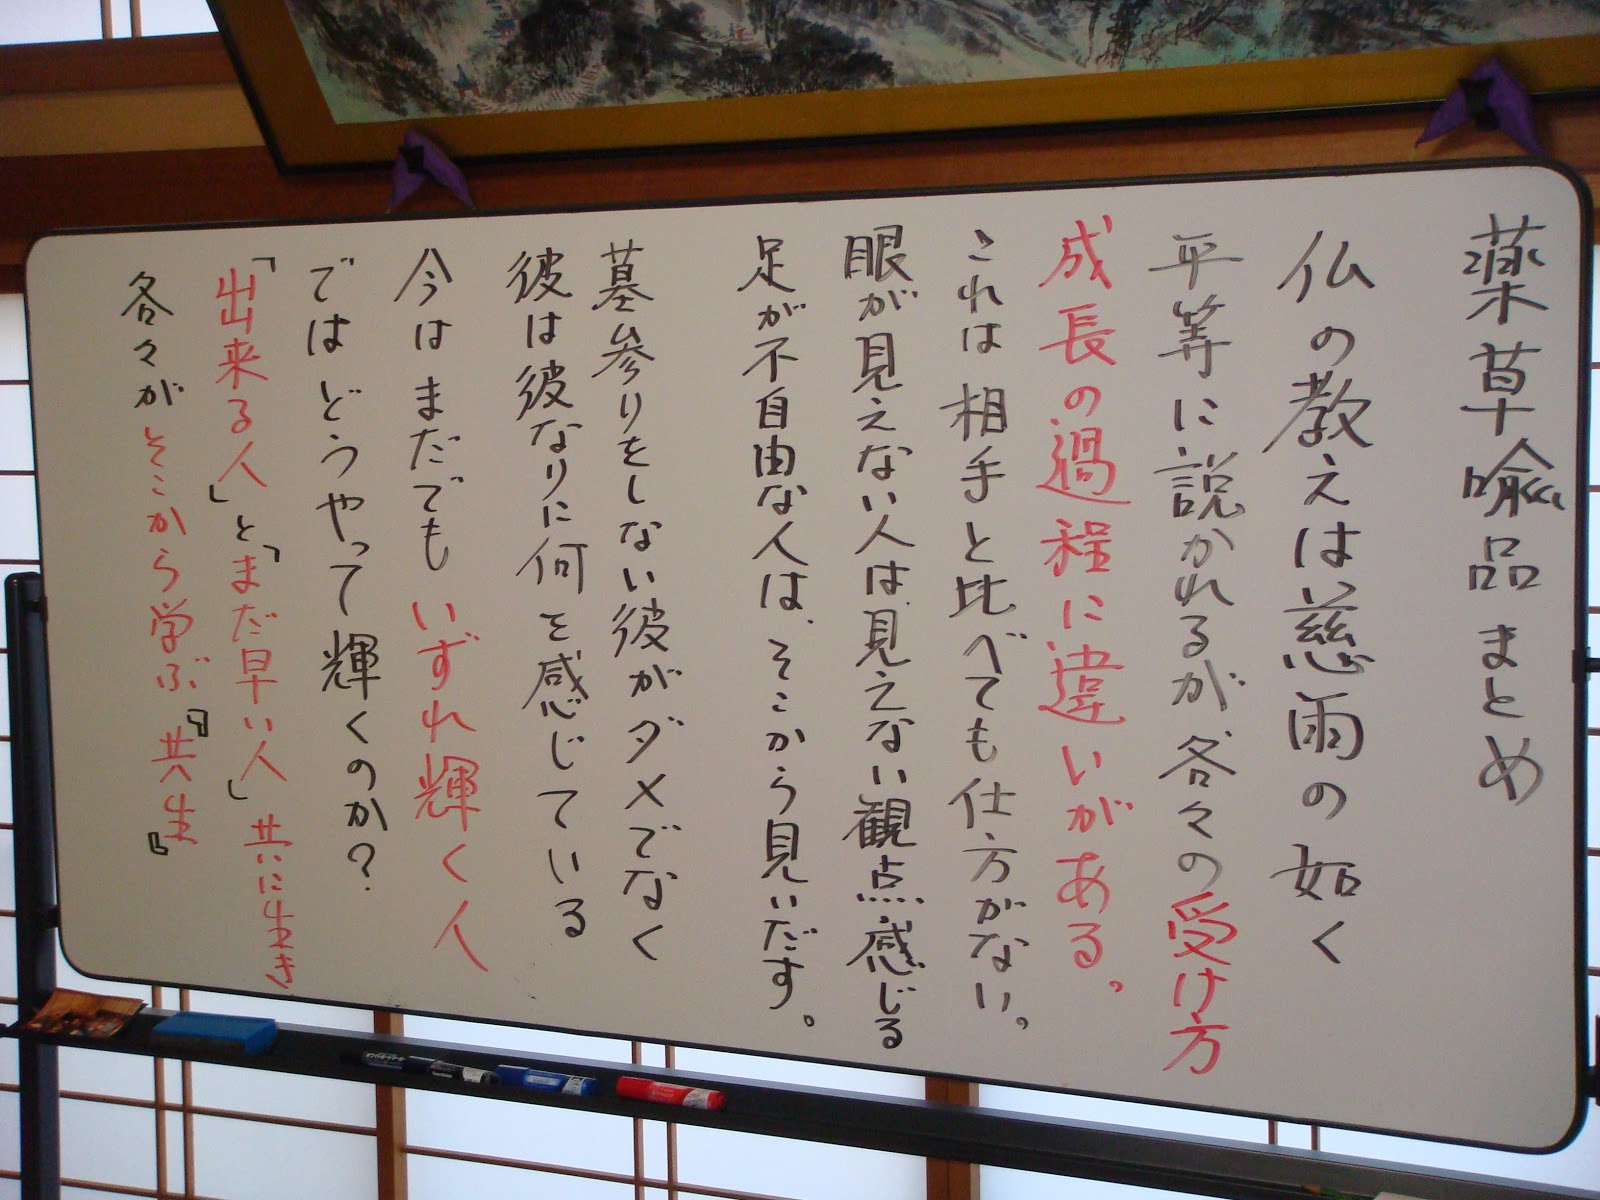 薬草喩品まとめ
仏の教えは慈雨の如く
平等に説かれるが各々の受け方
成長の過程に違いがある。
これは相手と比べても仕方がない。
眼が見えない人は、見えない観点感じる
足が不自由な人は、そこから見いだす。
墓参りをしない彼がダメでなく
彼は彼なりに何を感じている
今はまだでもいずれ輝く人
ではどうやって輝くのか?
「出来る人」と「まだ早い人」共に生き
各々がそこから学ぶ『共生』